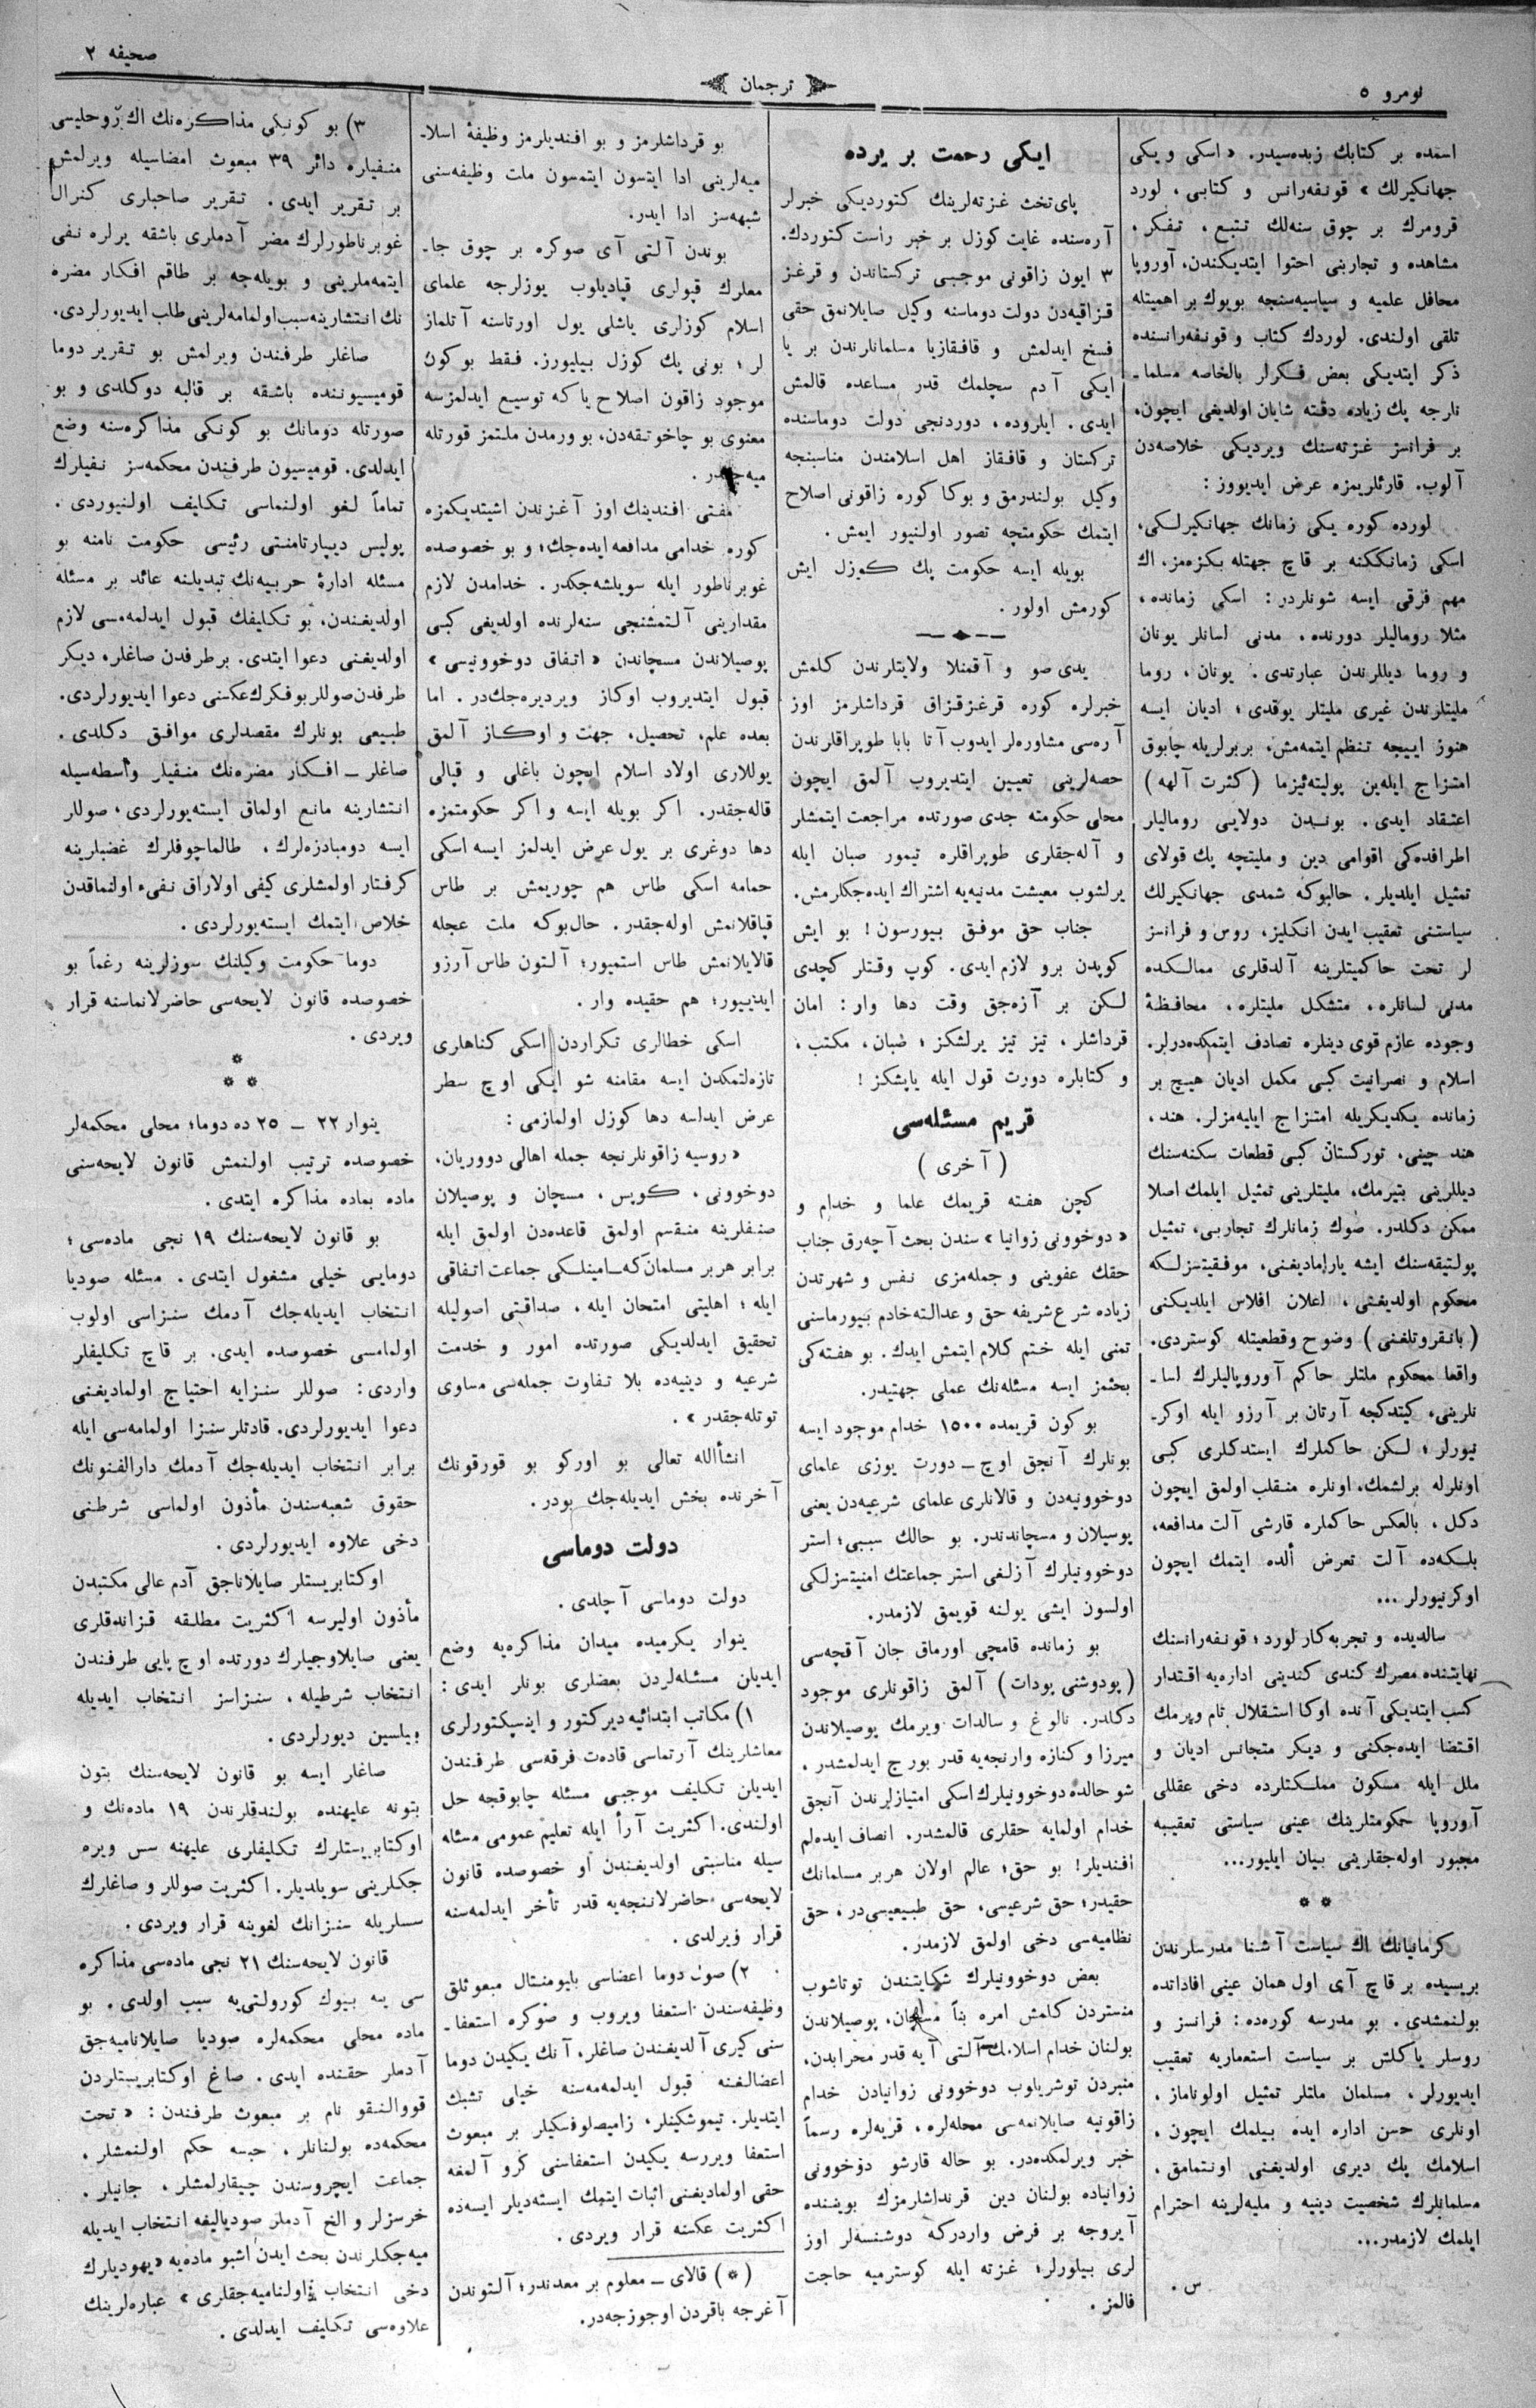 نومرو ٥
ترجمان
صحيفه ٢
اسمده بر كتابك زبده‌سيدر. «اسكى ويكى
جهانكيرلك» قونفه‌رانس و كتابى، لورد
قرومرك بر چوق سنه‌لك تتبع، تفكر،
مشاهده و تجاربنى احتوا ايتديكندن، آوروپا
محافل علميه و سياسيه‌سنجه بويوك بر اهميتله
تلقى اولندى. لوردك كتاب و قونفه‌رانسنده
ذكر ايتديكى بعض فكرلر بالخاصه مسلما-
نارجه پك زياده دقته شايان اولديغى ايچون،
بر فرانسز غزته‌سنك ويرديكى خلاصه‌دن
آلوب، قارئلريمزه عرض ايديوورز:
لورده كوره يكى زمانك جهانكيرلكى،
اسكى زمانككنه بر قاچ جهتله بكزه‌مز، اك
مهم فرقى ايسه شونلردر: اسكى زمانده،
مثلا روماليلر دورنده، مدنى لسانلر يونان
و روما ديللرندن عبارتدى. يونان، روما
مليتلرندن غيرى مليتلر يوقدى؛ اديان ايسه
هنوز اييجه تنظم ايتمه‌مش، بربرلريله چابوق
امتزاج ايله‌ين پوليته‌ئيزما (كثرت آلهه)
اعتقاد ايدى. بوندن دولايى روماليلر
اطرافده‌كى اقوامى دين و مليتچه پك قولاى
تمثيل ايلديلر. حالبوكه شمدى جهانكيرلك
سياستنى تعقيب ايدن انكليز، روس و فرانسز
لر تحت حاكميتلرينه آلدقلرى ممالكده
مدنى لسانلره، متشكل مليتلره، محافظهٔ
وجوده عازم قوى دينلره تصادف ايتمكده‌درلر.
اسلام و نصرانيت كبى مكمل اديان هيچ بر
زمانده يكديكريله امتزاج ايليه‌مزلر. هند،
هند چينى، توركستان كبى قطعات سكنه‌سنك
ديللرينى بتيرمك، مليتلرينى تمثيل ايلمك اصلا
ممكن دكلدر. صوك زمانلرك تجاربى، تمثيل
پوليتيقه‌سنك ايشه يارامديغنى، موفقيتسزلكه
محكوم اولديغنى، اعلان افلاس ايلديكنى
(بانقروتلغنى) وضوح وقطعيتله كوستردى.
واقعا محكوم ملتلر حاكم آوروپاليلرك لسا-
نلرينى، كيتدكجه آرتان بر آرزو ايله اوكر-
نيورلر؛ لكن حاكملرك ايستدكلرى كبى
اونلرله برلشمك، اونلره منقلب اولمق ايچون
دكل، بالعكس حاكملره قارشى آلت مدافعه،
بلكه‌ده آلت تعرض ألده ايتمك ايچون
اوكرنيورلر...
سالديده و تجربه‌كار لورد؛ قونفه‌رانسنك
نهايتنده مصرك كندى كندينى اداره‌يه اقتدار
كسب ايتديكى آنده اوكا استقلال تام ويرمك
اقتضا ايده‌جكنى و ديكر متجانس اديان و
ملل ايله مسكون مملكتلرده دخى عقللى
آوروپا حكومتلرينك عينى سياستى تعقيبه
مجبور اوله‌جقلرينى بيان ايليور...
* *
كرمانيانك اك سياست آشنا مدرسلرندن
بريسيده بر قاچ آى اول همان عينى افاداتده
بولنمشدى. بو مدرسه كوره‌ده: فرانسز و
روسلر ياكلش بر سياست استعماريه تعقيب
ايديورلر، مسلمان ملتلر تمثيل اولوناماز،
اونلرى حسن اداره ايده بيلمك ايچون،
اسلامك پك ديرى اولديغنى اونتمامق،
مسلمانلرك شخصيت دينيه و مليه‌لرينه احترام
ايلمك لازمدر...
س.
ايكى رحمت بر يرده
پاى‌تخت غزته‌لرينك كتورديكى خبرلر
آره‌سنده غايت كوزل بر خبر راست كتوردك.
٣ ايون زاقونى موجبى تركستاندن و قرغز
قزاقيه‌دن دولت دوماسنه وكيل صايلانمق حقى
فسخ ايدلمش و قافقازيا مسلمانلرندن بر يا
ايكى آدم سچلمك قدر مساعده قالمش
ايدى. ايلروده، دوردنجى دولت دوماسنده
تركستان و قافقاز اهل اسلامندن مناسبنجه
وكيل بولندرمق و بوكا كوره زاقونى اصلاح
ايتمك حكومتچه تصور اولنيور ايمش.
بويله ايسه حكومت پك كوزل ايش
كورمش اولور.
يدى صو و آقمنلا ولايتلرندن كلمش
خبرلره كوره قرغزقزاق قرداشلرمز اوز
آره‌سى مشاوره‌لر ايدوب آتا بابا طوپراقلرندن
حصه‌لرينى تعيين ايتديروب آلمق ايچون
محلى حكومته جدى صورتده مراجعت ايتمشلر
و آله‌جقلرى طوپراقلره تيمور صبان ايله
يرلشوب معيشت مدنيه‌يه اشتراك ايده‌جكلرمش.
جناب حق موفق بيورسون! بو ايش
كوپدن برو لازم ايدى. كوپ وقتلر كچدى
لكن بر آزه‌جق وقت دها وار: امان
قرداشلر، تيز تيز يرلشكز؛ صبان، مكتب،
و كتابلره دورت قول ايله ياپشكز!
قريم مسئله‌سى
(آخرى)
كچن هفته قريمك علما و خدام و
«دوخوونى زوانيا» سندن بحث آچه‌رق جناب
حقك عفوينى و جمله‌مزى نفس و شهرتدن
زياده شرع شريفه حق و عدالته خادم بيورماسنى
تمنى ايله ختم كلام ايتمش ايدك. بو هفته‌كى
بحثمز ايسه مسئله‌نك عملى جهتيدر.
بو كون قريمده ١٥٠٠ خدام موجود ايسه
بونلرك آنجق اوچ - دورت يوزى علماى
دوخوونيه‌دن و قالانلرى علماى شرعيه‌دن يعنى
پوسيلان و مسچاندندر. بو حالك سببى؛ استر
دوخوونيلرك آزلغى استر جماعتك امنيتسزلكى
اولسون ايشى يولنه قويمق لازمدر.
بو زمانده قامچى اورماق جان آقچه‌سى
(پودوشنى پودات) آلمق زاقونلرى موجود
دكلدر. نالوغ و سالدات ويرمك پوصيلاندن
ميرزا و كنازه وارنجه‌يه قدر بورج ايدلمشدر.
شو حالده دوخوونيلرك اسكى امتيازلرندن آنجق
خدام اولمايه حقلرى قالمشدر. انصاف ايده‌لم
افنديلر! بو حق؛ عالم اولان هربر مسلمانك
حقيدر؛ حق شرعيسى، حق طبيعيسى‌در، حق
نظاميه‌سى دخى اولمق لازمدر.
بعض دوخوونيلرك شكايتندن توتاشوب
منستردن كلمش امره بنأ مسچان، پوصيلاندن
بولنان خدام اسلامك آلتى آيه قدر محرابدن،
منبردن توشريلوب دوخوونى زوانيادن خدام
زاقونيه صايلانمه‌سى محله‌لره، قريه‌لره رسماً
خبر ويرلمكده‌در. بو حاله قارشو دوخوونى
زوانياده بولنان دين قرنداشلرمزك بوينده
آيروجه بر فرض واردركه دوشنسه‌لر اوز
لرى بيلورلر؛ غزته ايله كوسترميه حاجت
قالمز.
بو قرداشلرمز و بو افنديلرمز وظيفهٔ اسلا-
ميه‌لرينى ادا ايتسون ايتمسون ملت وظيفه‌سنى
شبهه‌سز ادا ايدر.
بوندن آلتى آى صوكره بر چوق جا-
معلرك قپولرى قپاديلوب يوزلرجه علماى
اسلام كوزلرى ياشلى يول اورتاسنه آتلماز
لر؛ بونى پك كوزل بيليورز. فقط بوكون
موجود زاقون اصلاح ياكه توسيع ايدلمزسه
معنوى بو چاخوتقه‌دن، بو ورمدن ملتمز قورتله
ميه‌جكدر.
مفتى افندينك اوز آغزندن اشيتديكمزه
كوره خدامى مدافعه ايده‌جك؛ و بو خصوصده
غوبرناطور ايله سويلشه‌جكدر. خدامدن لازم
مقدارينى آلتمشنجى سنه‌لرنده اولديغى كبى
پوصيلاندن مسچاندن «اتفاق دوخوونيسى»
قبول ايتديروب اوكاز ويرديره‌جك‌در. اما
بعده علم، تحصيل، جهت و اوكاز آلمق
يوللارى اولاد اسلام ايچون باغلى و قپالى
قاله‌جقدر. اكر بويله ايسه و اكر حكومتمزه
دها دوغرى بر يول عرض ايدلمز ايسه اسكى
حمامه اسكى طاس هم چوريمش بر طاس
قپاقلانمش اوله‌جقدر. حال‌بوكه ملت عجله
قالايلانمش طاس استميور؛ آلتون طاس آرزو
ايدييور؛ هم حقيده وار.
اسكى خطالرى تكراردن اسكى كناهلرى
تازه‌لتمكدن ايسه مقامنه شو ايكى اوچ سطر
عرض ايدلسه دها كوزل اولمازمى:
«روسيه زاقونلرنجه جمله اهالى دووريان،
دوخوونى، كوپس، مسچان و پوصيلان
صنفلرينه منقسم اولمق قاعده‌دن اولمق ايله
برابر هربر مسلمان كه-امينلكى جماعت اتفاقى
ايله؛ اهليتى امتحان ايله، صداقتى اصوليله
تحقيق ايدلديكى صورتده امور و خدمت
شرعيه و دينيه‌ده بلا تفاوت جمله‌سى مساوى
توتله‌جقدر».
انشأالله تعالى بو اوركو بو قورقونك
آخرنده بخش ايديله‌جك بودر.
دولت دوماسى
دولت دوماسى آچلدى.
ينوار يكرميده ميدان مذاكره‌يه وضع
ايديلن مسئله‌لردن بعضلرى بونلر ايدى:
١) مكاتب ابتدائيه ديركتور و اينسپكتورلرى
معاشلرينك آرتماسى قاده‌ت فرقه‌سى طرفندن
ايديلن تكليف موجبى مسئله چابوقجه حل
اولندى. اكثريت آرأ ايله تعليم عمومى مسئله
سيله مناسبتى اولديغندن او خصوصده قانون
لايحه‌سى حاضرلاننجه‌يه قدر تأخر ايدلمه‌سنه
قرار ويرلدى.
٢) صوك دوما اعضاسى بايومنتال مبعوثلق
وظيفه‌سندن استعفا ويروب و صوكره استعفا-
سنى كيرى آلديغندن صاغلر، آنك يكيدن دوما
اعضالغنه قبول ايدلمه‌مه‌سنه خيلى تشبث
ايتديلر. تيموشكينلر، زاميصلوفسكيلر بر مبعوث
استعفا ويررسه يكيدن استعفاسنى كرو آلمغه
حقى اولماديغنى اثبات ايتمك ايسته‌ديلر ايسه‌ده
اكثريت عكسنه قرار ويردى.
(*) قالاى - معلوم بر معدندر؛ آلتوندن
آغرجه باقردن اوجوزجه‌در.
٣) بو كونكى مذاكره‌نك اك روحليسى
منفيلره دائر ٣٩ مبعوث امضاسيله ويرلمش
بر تقرير ايدى. تقرير صاحبلرى كنرال
غوبرناطورلرك مضر آدملرى باشقه يرلره نفى
ايتمه‌ملرينى و بويله‌جه بر طاقم افكار مضره
نك انتشارينه سبب اولمامه‌لرينى طلب ايديورلردى.
صاغلر طرفندن ويرلمش بو تقرير دوما
قوميسيوننده باشقه بر قالبه دوكلدى و بو
صورتله دومانك بو كونكى مذاكره‌سنه وضع
ايدلدى. قوميسيون طرفندن محكمه‌سز نفيلرك
تماماً لغو اولنماسى تكليف اولنيوردى.
پوليس ديپارتامنتى رئيسى حكومت نامنه بو
مسئله ادارهٔ حربيه‌نك تبديلنه عائد بر مسئله
اولديغندن، بو تكليفك قبول ايدلمه‌مسى لازم
اولديغنى دعوا ايتدى. برطرفدن صاغلر، ديكر
طرفدن صوللر بو فكرك عكسنى دعوا ايديورلردى.
طبيعى بونلرك مقصدلرى موافق دكلدى.
صاغلر - افكار مضره‌نك منفيلر واسطه‌سيله
انتشارينه مانع اولماق ايسته‌يورلردى، صوللر
ايسه دومبادزه‌لرك، طالماچوفلرك غضبلرينه
كرفتار اولمشلرى كيفى اولاراق نفىء اولنماقدن
خلاص ايتمك ايسته‌يورلردى.
دوما حكومت وكيلنك سوزلرينه رغماً بو
خصوصده قانون لايحه‌سى حاضرلانماسنه قرار
ويردى.
*
* *
ينوار ٢٢ - ٢٥ ده دوما؛ محلى محكمه‌لر
خصوصده ترتيب اولنمش قانون لايحه‌سنى
ماده بماده مذاكره ايتدى.
بو قانون لايحه‌سنك ١٩ نجى ماده‌سى؛
دومايى خيلى مشغول ايتدى. مسئله صوديا
انتخاب ايديله‌جك آدمك سنزاسى اولوب
اولمامسى خصوصده ايدى. بر قاچ تكليفلر
واردى: صوللر سنزايه احتياج اولماديغنى
دعوا ايديورلردى. قادتلر سنزا اولمامه‌سى ايله
برابر انتخاب ايديله‌جك آدمك دارالفنونك
حقوق شعبه‌سندن مأذون اولماسى شرطنى
دخى علاوه ايديورلردى.
اوكتابريستلر صايلاناجق آدم عالى مكتبدن
مأذون اوليرسه اكثريت مطلقه قزاندقلرى
يعنى صايلاوجيلرك دورتده اوچ پايى طرفندن
انتخاب شرطيله، سنزاسز انتخاب ايديله
بيلسين ديورلردى.
صاغلر ايسه بو قانون لايحه‌سنك بتون
بتونه عليهنده بولندقلرندن ١٩ ماده‌نك و
اوكتابريستلرك تكليفلرى عليهنه سس ويره
جكلرينى سويلديلر. اكثريت صوللر و صاغلرك
سسلريله سنزانك لغوينه قرار ويردى.
قانون لايحه‌سنك ٢١ نجى ماده‌سى مذاكره
سى ينه بيوك كورولتى‌يه سبب اولدى. بو
ماده محلى محكمه‌لره صوديا صايلاناميه‌جق
آدملر حقنده ايدى. صاغ اوكتابريستلردن
قووالنقو نام بر مبعوث طرفندن: «تحت
محكمه‌ده بولنانلر، حبسه حكم اولنمشلر،
جماعت ايچروسندن چيقارلمشلر، جانيلر،
خرسزلر و الخ آدملر صودياليغه انتخاب ايديله
ميه‌جكلرندن بحث ايدن اشبو ماده‌يه «يهوديلرك
دخى انتخاب اولناميه‌جقلرى» عباره‌لرينك
علاوه‌سى تكليف ايدلدى.